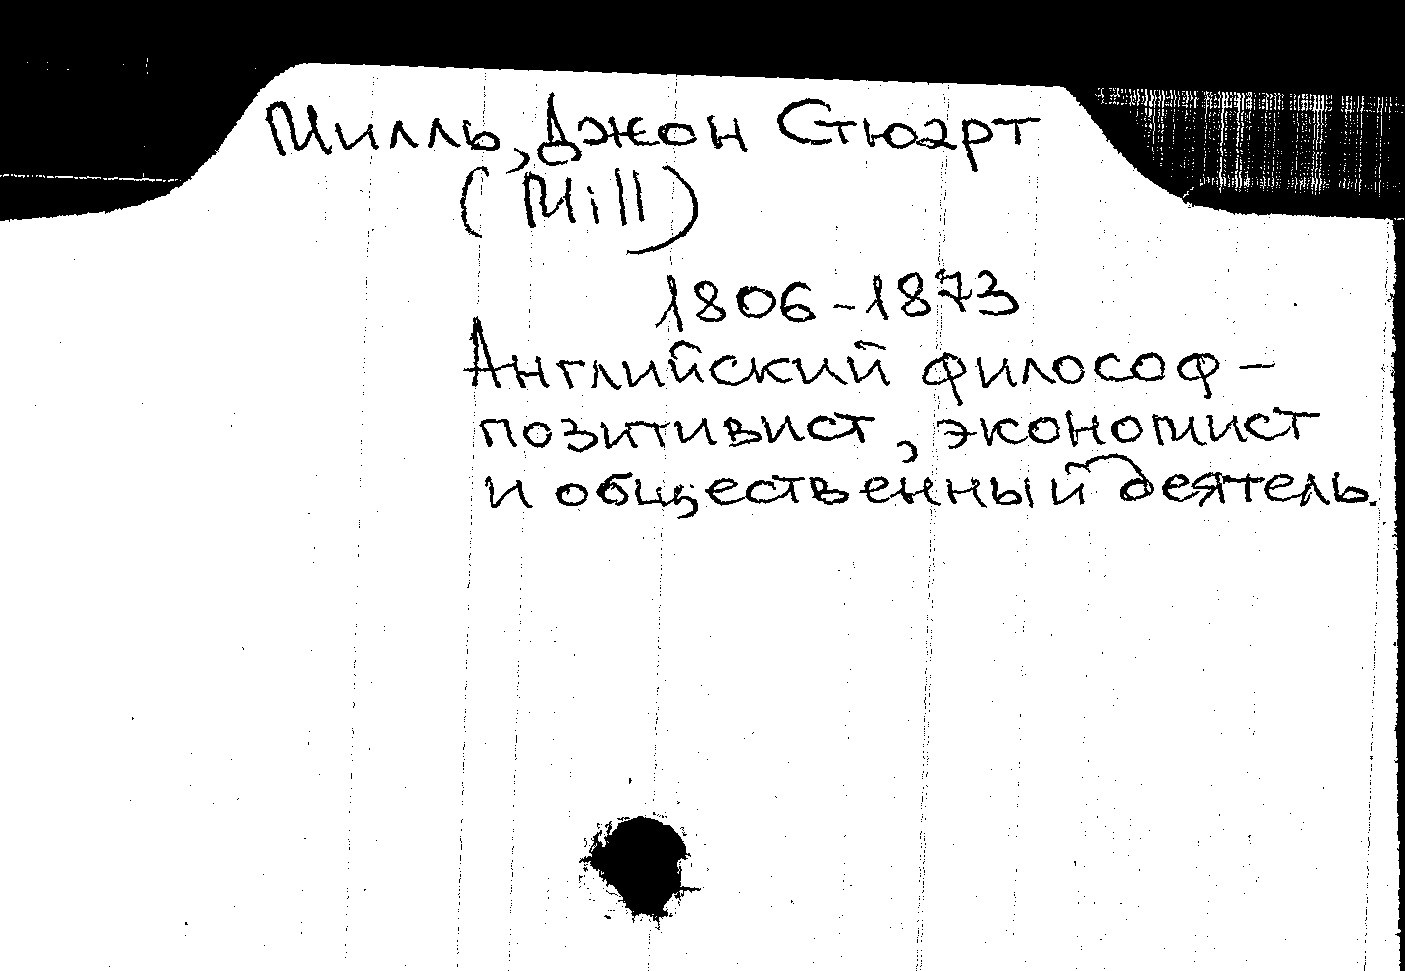 Милль, Джон Стюарт
(Mill)
1806-1873
Английский философ-
позитивист, экономист
и общественный деятель.